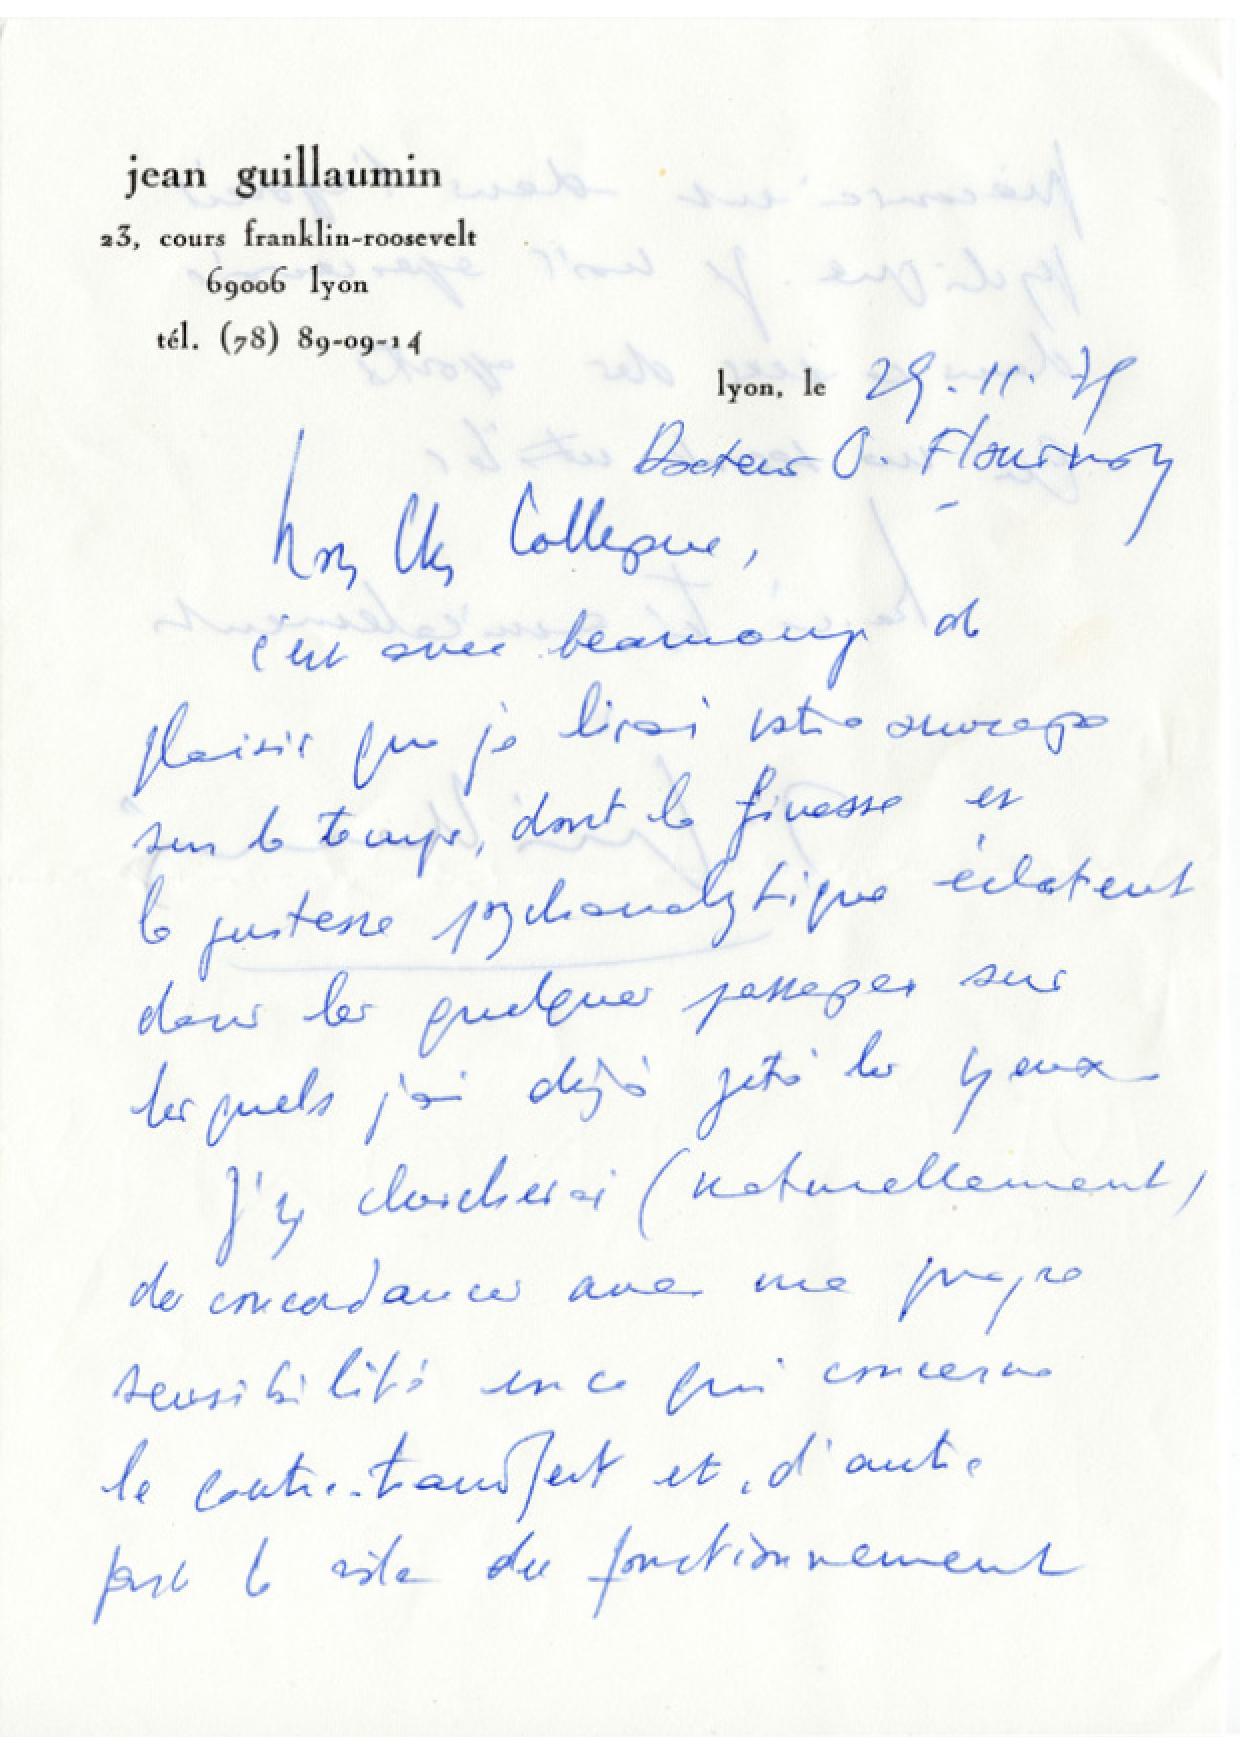 jean guillaumin
23, cours franklin-roosevelt
69006 lyon
tél. (78) 89-09-14
lyon, le 29.11.79
Docteur O. Flournoy
Mon Cher Collegue,
c'est avec beaucoup de
plaisir que je lirai votre ouvrage
sur le temps, dont la finesse et
la justesse psychanalytique éclatent
dans les quelques passages sur
lesquels j'ai déjà jeté les yeux
J'y chercherai (naturellement)
des concordances avec ma propre
sensibilité en ce qui concerne
le contre-transfert et, d'autre
part le rôle du fonctionnement